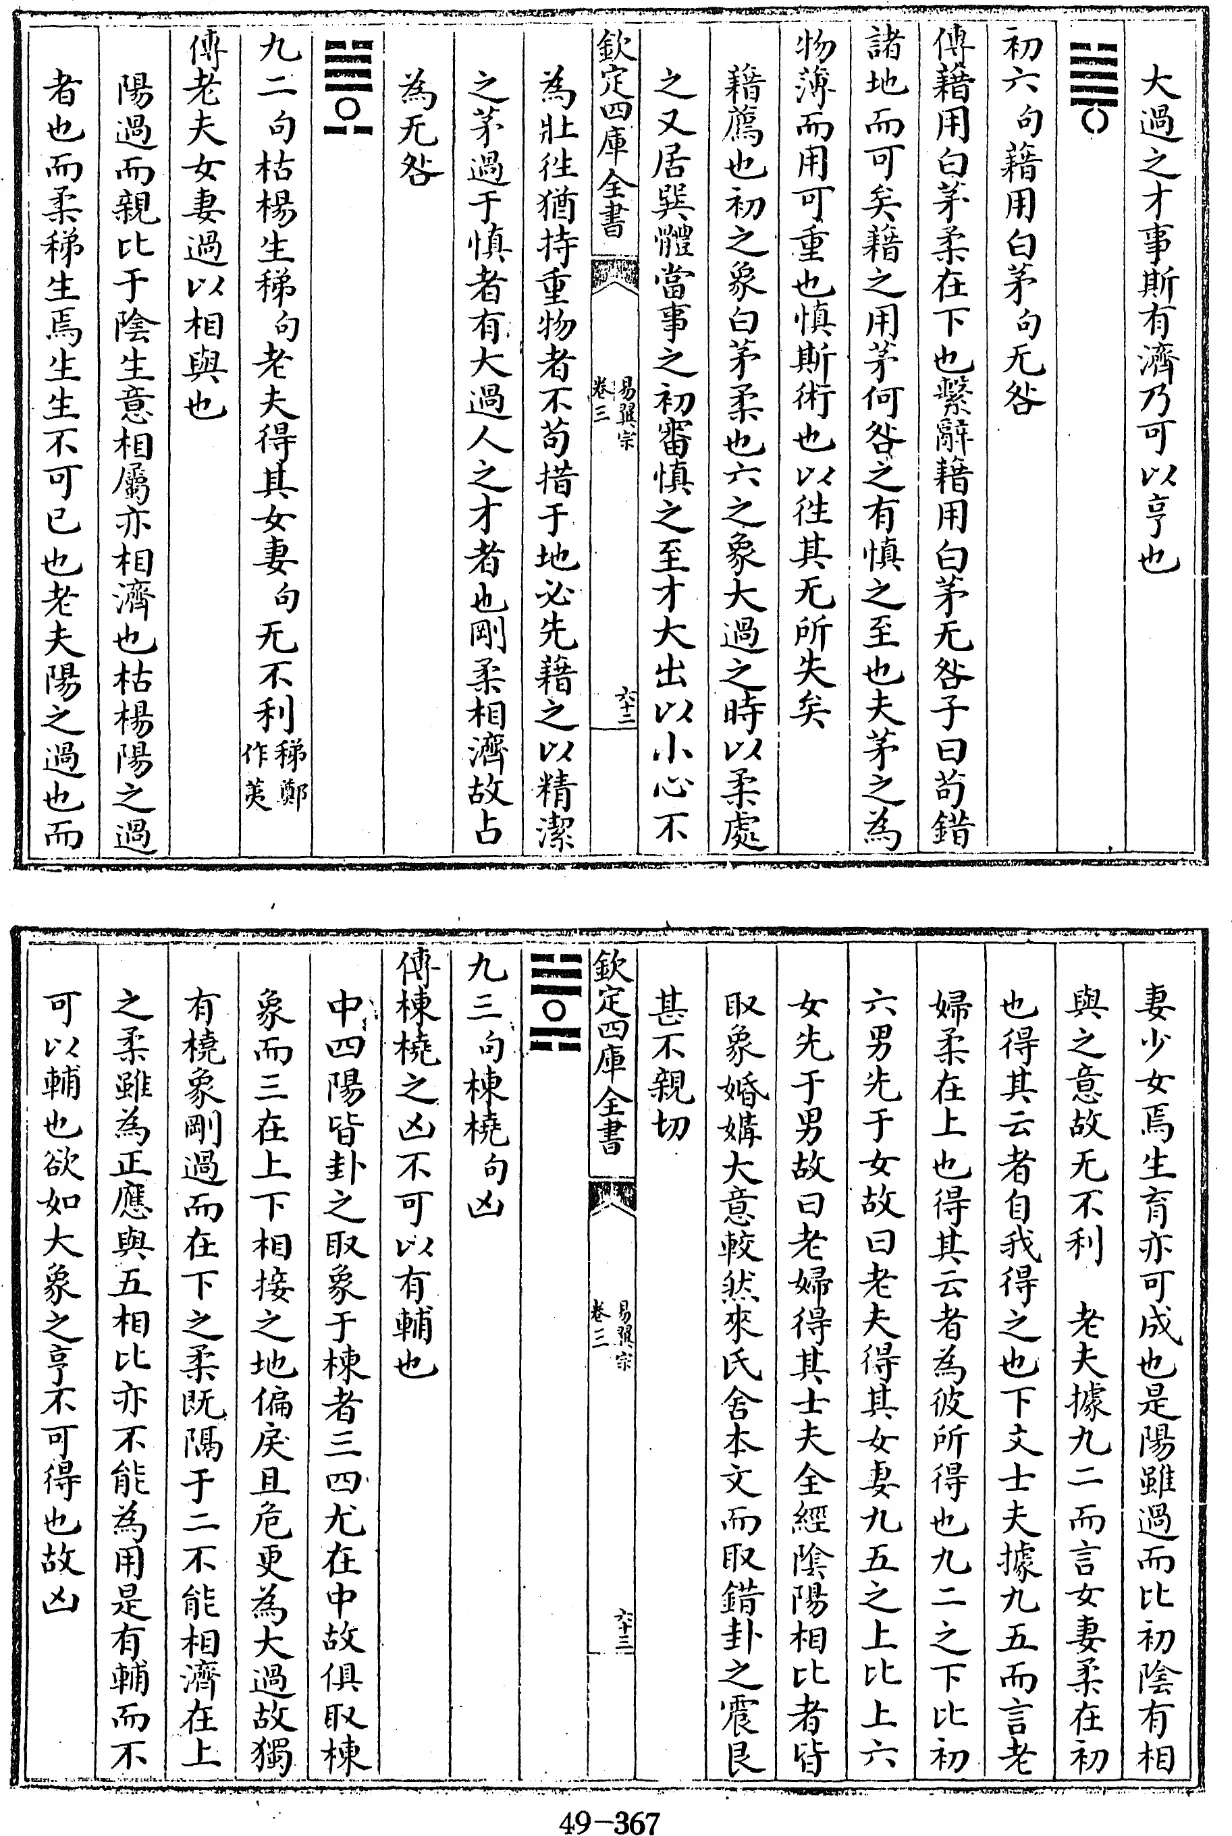 大過之才事斯有濟乃可以亨也
初六句藉用白茅句无咎
傳藉用白茅柔在下也繫辭藉用白茅无咎子曰苟錯
諸地而可矣藉之用茅何咎之有慎之至也夫茅之為
物薄而用可重也慎斯術也以往其无所失矣
藉薦也初之象白茅柔也六之象大過之時以柔處
之又居巽體當事之初審慎之至才大出以小心不
欽定四庫全書
易翼宗
卷三
六十二
為壯往猶持重物者不苟措于地必先藉之以精潔
之茅過于慎者有大過人之才者也剛柔相濟故占
為无咎
九二句枯楊生稊句老夫得其女妻句无不利稊鄭作荑
傳老夫女妻過以相與也
陽過而親比于陰生意相屬亦相濟也枯楊陽之過
者也而柔稊生焉生生不可已也老夫陽之過也而
妻少女焉生育亦可成也是陽雖過而比初陰有相
與之意故无不利 老夫據九二而言女妻柔在初
也得其云者自我得之也下文士夫據九五而言老
婦柔在上也得其云者為彼所得也九二之下比初
六男先于女故曰老夫得其女妻九五之上比上六
女先于男故曰老婦得其士夫全經陰陽相比者皆
取象婚媾大意較然來氏舍本文而取錯卦之震艮
甚不親切
欽定四庫全書
易翼宗
卷三
六十三
九三句棟橈句凶
傳棟橈之凶不可以有輔也
中四陽皆卦之取象于棟者三四尤在中故俱取棟
象而三在上下相接之地偏戾且危更為大過故獨
有橈象剛過而在下之柔既隔于二不能相濟在上
之柔雖為正應與五相比亦不能為用是有輔而不
可以輔也欲如大象之亨不可得也故凶
49-367